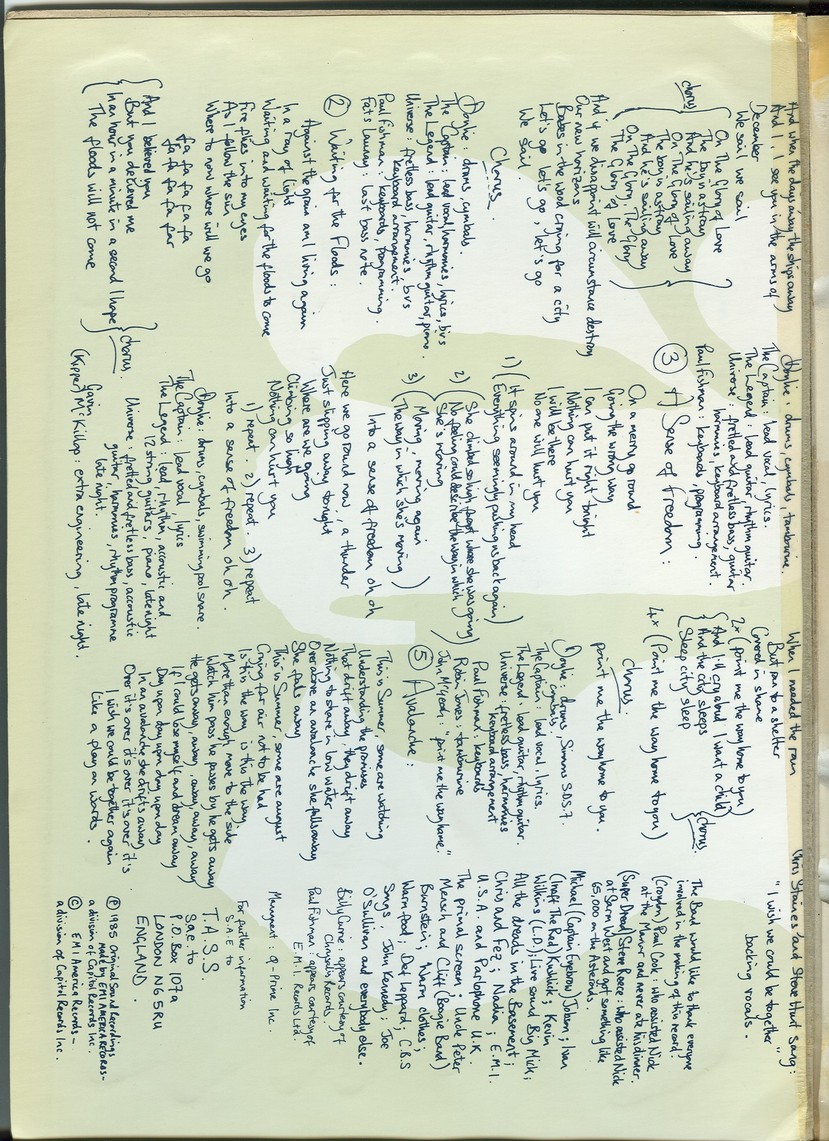 And when the days away the ships away
And I, I see you in the arms of
December
We sail we sail
On The Glory of Love
The boy is astray
And he's sailing away
On The Glory of Love
The boy is astray
And he's sailing away
On The Glory, The Glory
The Glory of Love
chorus
And if we disappoint, will circumstance destroy
Our new horizons
Babes in the wood crying for a city
Let's go let's go, let's go
We sail
Chorus.
Doyle: drums, cymbals.
The Captain: lead vocal, harmonies, lyrics, b.v.s
The Legend: lead guitar, rhythm guitar, piano.
Universe: fretless bass, harmonies, b.v.s
keyboard arrangement.
Paul Fishman: keyboards, programming.
last bass note.
② Waiting for the Floods:
Against the grain am I living again
In a ray of light
Waiting and waiting for the floods to come
Fire flies into my eyes
As I follow the sun
Where to now where will we go
fa fa fa fa fa
fa fa fa fa far
And I believed you
But you deceived me
In an hour in a minute in a second I hope
The floods will not come
chorus.
Doyle: drums, cymbals, tambourine.
The Captain: lead vocal, lyrics.
The Legend: lead guitar rhythm guitar.
Universe: fretted and fretless bass, guitar
harmonies, keyboard arrangement
Paul Fishman: keyboards, programming.
③ A Sense of Freedom:
On a merry go round
Going the wrong way
I can put it right tonight
Nothing can hurt you
I will be there
No one will hurt you
1) (It spins around in my head
Everything seemingly pulling us back again)
2) (She climbed so high forgot where she was going
No feeling could describe the way in which
She's moving
3) (Moving, moving again
The way in which she's moving)
Into a sense of freedom oh oh
Here we go round now, a thunder
Just slipping away tonight
Where are we going
Climbing so high
Nothing can hurt you
1) repeat. 2) repeat 3) repeat
Into a sense of freedom oh oh.
Doyle: drums, cymbals, swimming pool snare.
The Captain: lead vocal, lyrics
The Legend: lead, rhythm, acoustic and
12 string guitars, piano, late night
Universe: fretted and fretless bass, accoustic
guitar, harmonies, rhythm programme
late night.
Gavin
(Kipper) McKillop: extra engineering, late night.
When I needed the rain
But ran to a shelter
Covered in shame
2x (point me the way home to you)
And I'll cry about I want a child
And the city sleeps
Sleep city sleep
chorus.
4x (Point me the way home to you)
Chorus
point me the way home to you.
Doyle: drums, Simmons S.D.S.7.
cymbals.
The Captain: lead vocal, lyrics.
The Legend: lead guitar, rhythm guitar.
Universe: fretless bass, harmonies
keyboard arrangement
Paul Fishman: keyboards
Robin Jones: tambourine
John McGeoch: "point me the way home."
⑤ Avalanche:
This is Summer, some are watching
Understanding the promises
That drift away, they drift away
Nothing to share in low water
Over above an avalanche she falls away
She falls away
This is Summer, some are august
Crying fair air not to be had
Is this the way is this the way
More than enough move to the side
Watch him pass, he passes by he gets away
He gets away, away, away, away, away
If I could lose myself and dream away
Day upon day upon day upon day
In an avalanche she drifts away
Over it's over it's over it's over it's
I wish we could be together again
Like a play on words.
Chris Staines and Steve Hunt sang:
"I wish we could be together"
backing vocals.
The Band would like to thank everyone
involved in the making of this record:
(Croydon) Paul Cook: who assisted Nick
at the Manor and never ate his dinner.
(Super Dread) Steve Reece: who assisted Nick
at Sarm West and got something like
65,000 on the Asteroids.
Michael (Captain Eyebrow) Jobson; Ivan
(Ivaft The Red) Kushlick; Kevin
Wilkins (L.D); Live sound Big Mick;
All the dreads in the Basement;
Chris and Fez; Nadia; E.M.I.
U.S.A. and Parlophone U.K.
The primal scream; Uncle Peter
Mensch and Cliff (Boogie Band)
Burnstein; Warm clothes;
Warm food; Def Leppard; C.B.S
Songs, John Kennedy; Joe
O'Sullivan and everybody else.
Billy Currie: appears courtesy of
Chrysalis Records.
Paul Fishman: appears courtesy of
E.M.I. Records Ltd.
Management: Q-Prime Inc.
For further information
S.A.E to
T.A.S.S.
S.a.e. to
P.O. Box 107a
LONDON N6 5RU
ENGLAND.
℗ 1985 Original Sound Recordings
made by EMI AMERICA RECORDS-
a division of Capitol Records Inc.
© EMI America Records-
a division of Capitol Records Inc.